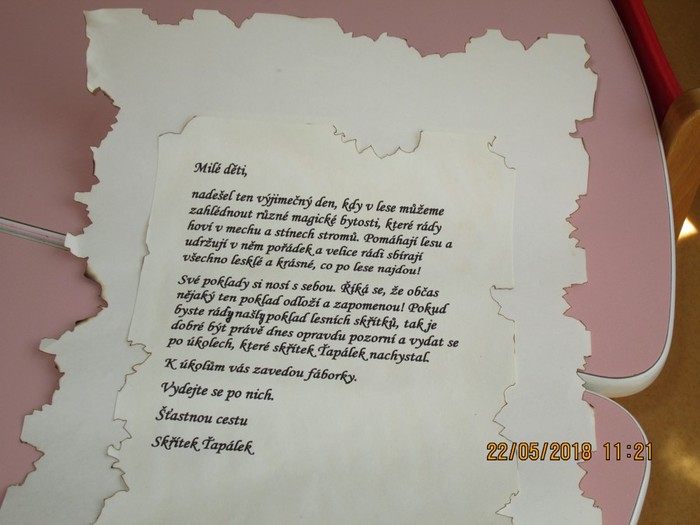 Milé děti,
nadešel ten výjimečný den, kdy v lese můžeme
zahlédnout různé magické bytosti, které rády
hoví v mechu a stínech stromů. Pomáhají lesu a
udržují v něm pořádek a velice rádi sbírají
všechno lesklé a krásné, co po lese najdou!
Své poklady si nosí s sebou. Říká se, že občas
nějaký ten poklad odloží a zapomenou! Pokud
byste rády našly poklad lesních skřítků, tak je
dobré být právě dnes opravdu pozorní a vydat se
po úkolech, které skřítek Ťapálek nachystal.
K úkolům vás zavedou fáborky.
Vydejte se po nich.
Šťastnou cestu
Skřítek Ťapálek
22/05/2018 11:21